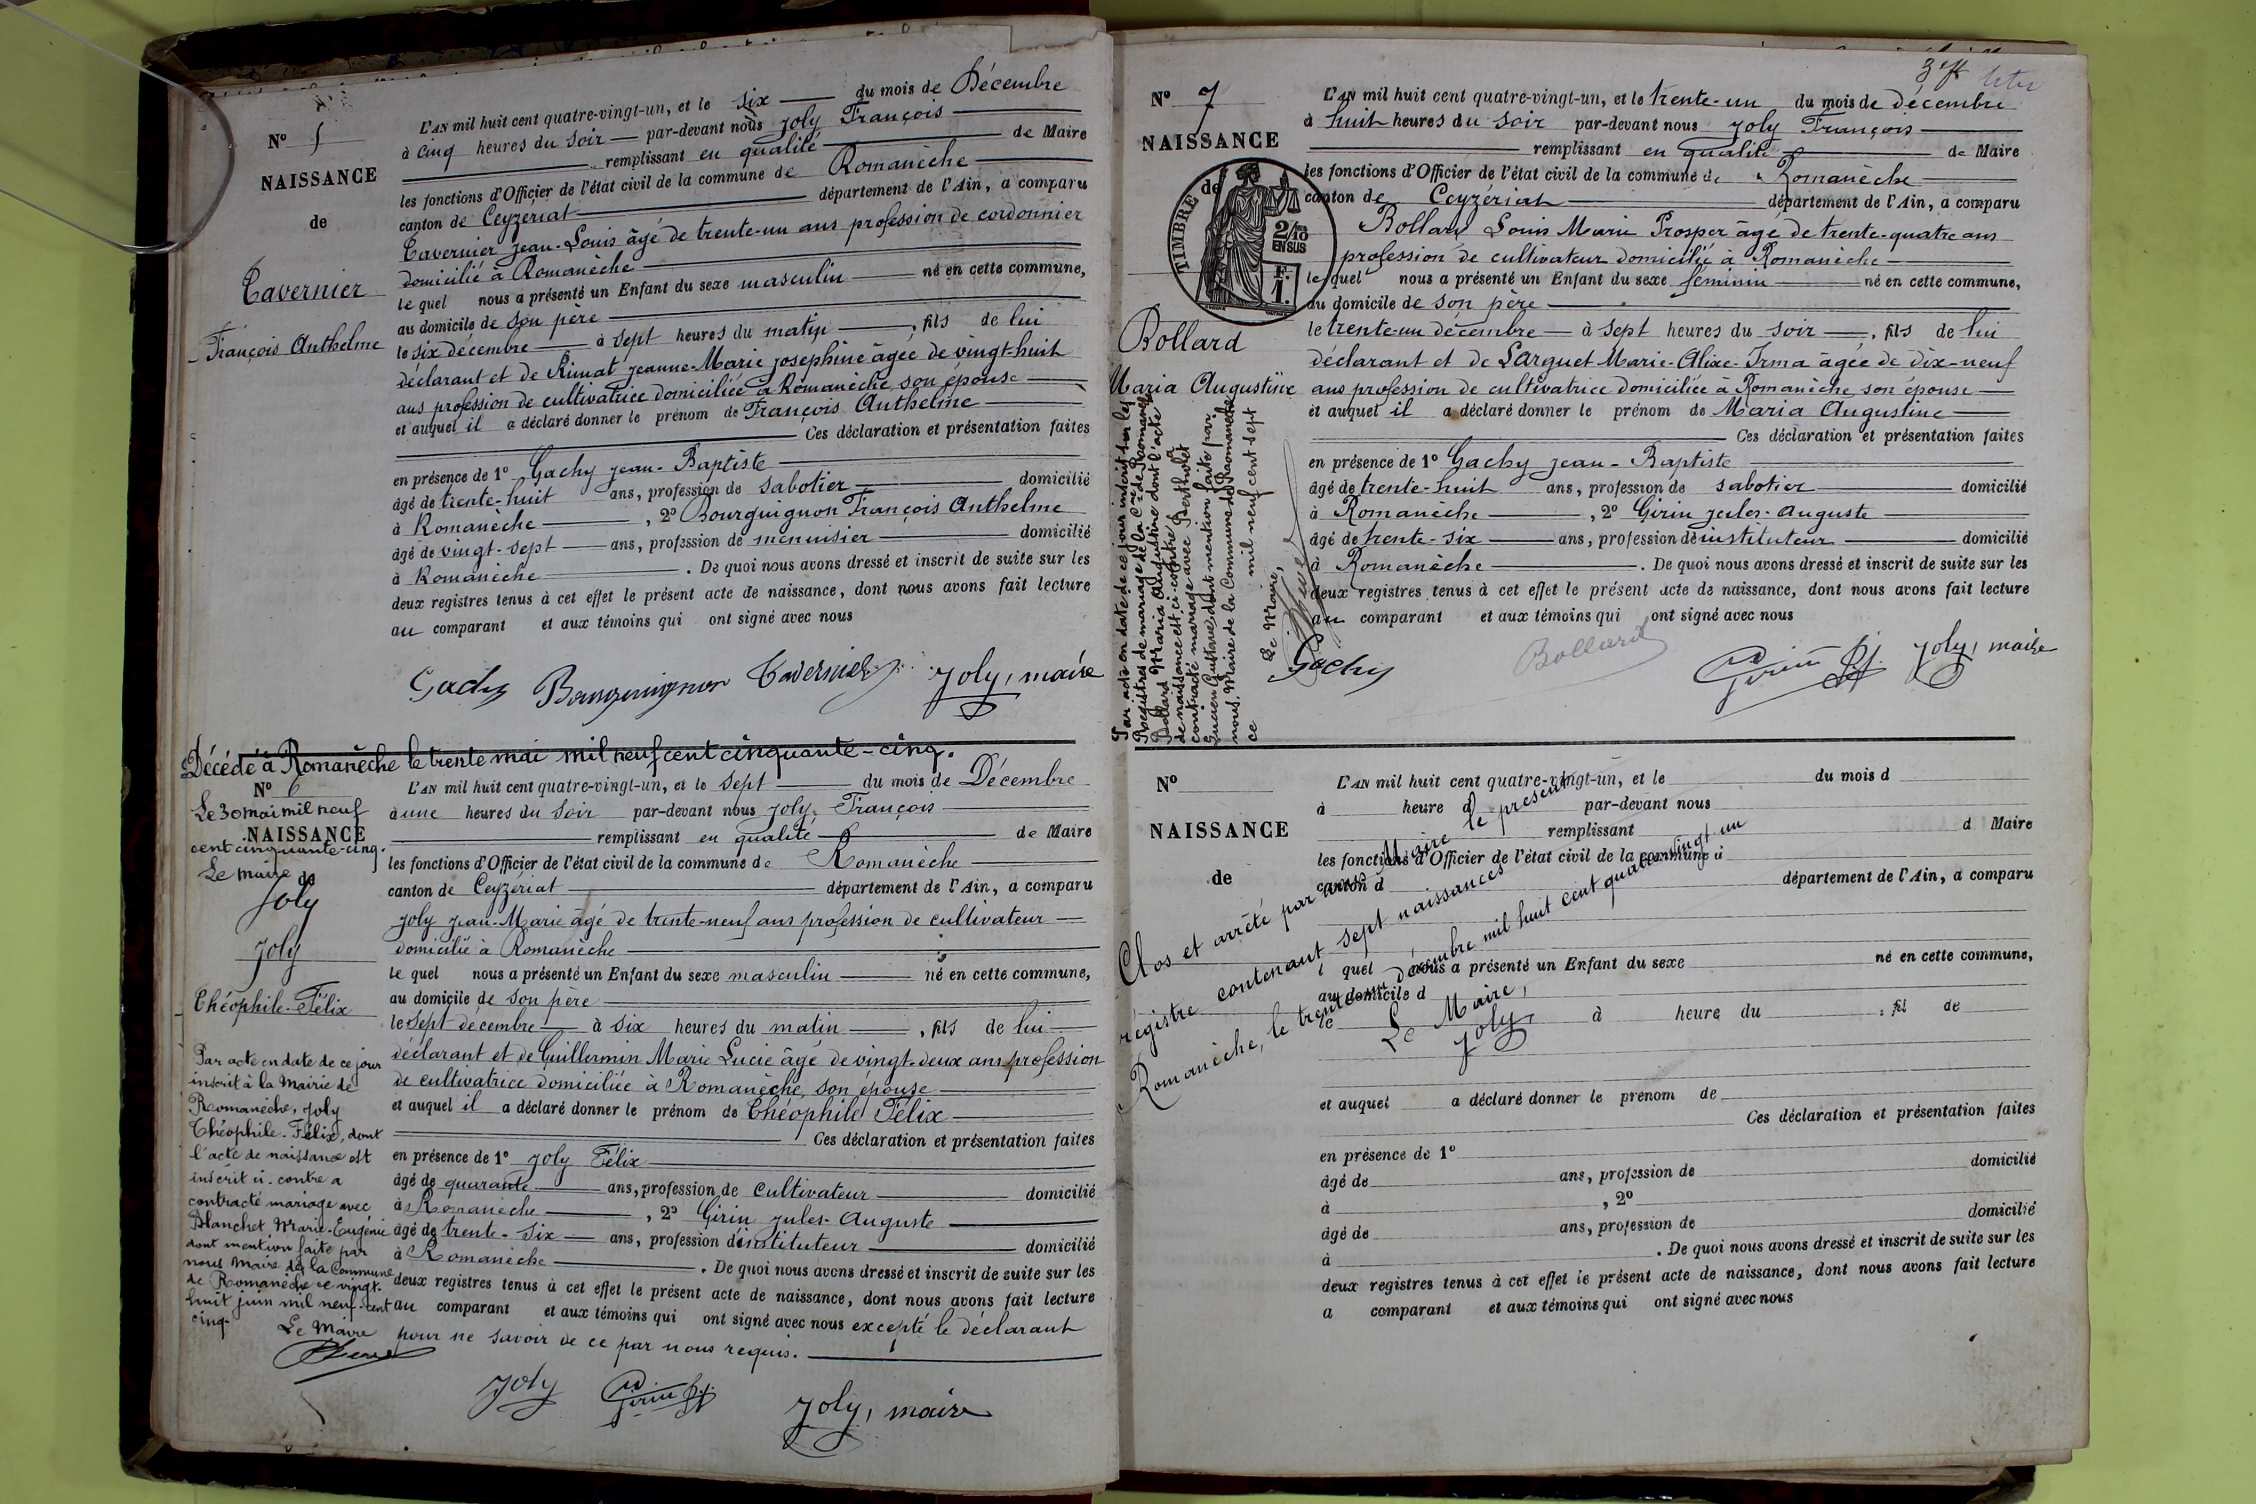 N° 5
NAISSANCE
de
Tavernier
François Anthelme
L'AN mil huit cent quatre-vingt-un, et le six du mois de Décembre
à cinq heures du soir par-devant nous Joly François
remplissant en qualité de Maire
les fonctions d'Officier de l'état civil de la commune de Romanèche
canton de Ceyzériat département de l'Ain, a comparu
Tavernier Jean-Louis âgé de trente-un ans profession de cordonnier
domicilié à Romanèche
le quel nous a présenté un Enfant du sexe masculin né en cette commune,
au domicile de son père
le six décembre à sept heures du matin, fils de lui
déclarant et de Rimat Jeanne-Marie Josephine âgée de vingt-huit
ans profession de cultivatrice domiciliée à Romanèche son épouse
et auquel il a déclaré donner le prénom de François Anthelme
Ces déclaration et présentation faites
en présence de 1° Gachy Jean-Baptiste
âgé de trente-huit ans, profession de sabotier domicilié
à Romanèche, 2° Bourguignon François Anthelme
âgé de vingt-sept ans, profession de menuisier domicilié
à Romanèche. De quoi nous avons dressé et inscrit de suite sur les
deux registres tenus à cet effet le présent acte de naissance, dont nous avons fait lecture
au comparant et aux témoins qui ont signé avec nous
Gachy Bourguignon Tavernier Joly, maire
Décédé à Romanèche le trente mai mil neuf cent cinquante-cinq.
N° 6
Le 30 mai mil neuf
NAISSANCE
cent cinquante-cinq.
Le maire
de
Joly
Joly
Théophile-Félix
Par acte en date de ce jour
inscrit à la Mairie de
Romanèche, Joly
Théophile-Félix, dont
l'acte de naissance est
inscrit ci-contre a
contracté mariage avec
Blanchet Marie-Eugénie
dont mention faite par
nous Maire de la Commune
de Romanèche ce vingt-
huit juin mil neuf-cent
cinq.
Le Maire
L'AN mil huit cent quatre-vingt-un, et le sept du mois de Décembre
à une heures du soir par-devant nous Joly François
remplissant en qualité de Maire
les fonctions d'Officier de l'état civil de la commune de Romanèche
canton de Ceyzériat département de l'Ain, a comparu
Joly Jean-Marie âgé de trente-neuf ans profession de cultivateur
domicilié à Romanèche
le quel nous a présenté un Enfant du sexe masculin né en cette commune,
au domicile de son père
le sept décembre à six heures du matin, fils de lui
déclarant et de Guillermin Marie Lucie âgé de vingt-deux ans profession
de cultivatrice domiciliée à Romanèche, son épouse
et auquel il a déclaré donner le prénom de Théophile Félix
Ces déclaration et présentation faites
en présence de 1° Joly Félix
âgé de quarante ans, profession de cultivateur domicilié
à Romanèche, 2° Girin Jules-Auguste
âgé de trente-six ans, profession d'instituteur domicilié
à Romanèche. De quoi nous avons dressé et inscrit de suite sur les
deux registres tenus à cet effet le présent acte de naissance, dont nous avons fait lecture
au comparant et aux témoins qui ont signé avec nous excepté le déclarant
pour ne savoir de ce par nous requis.
Joly Girin Joly, maire
N° 7
NAISSANCE
de
TIMBRE
2/10
EN SUS
1 F.
Bollard
Maria Augustine
Par acte en date de ce jour inscrit sur les
Registres de mariage de la Cne de Romanèche
Bollard Maria Augustine dont l'acte
de naissance est ci-contre a
contracté mariage avec Bertholet
Lucien Gustave, dont mention faite par
nous, Maire de la Commune de Romanèche
ce mil neuf cent sept
Le Maire,
L'AN mil huit cent quatre-vingt-un, et le trente-un du mois de décembre
à huit heures du soir par-devant nous Joly François
remplissant en qualité de Maire
les fonctions d'Officier de l'état civil de la commune de Romanèche
canton de Ceyzériat département de l'Ain, a comparu
Bollard Louis Marie Prosper âgé de trente-quatre ans
profession de cultivateur domicilié à Romanèche
le quel nous a présenté un Enfant du sexe feminin né en cette commune,
au domicile de son père
le trente-un décembre à sept heures du soir, fils de lui
déclarant et de Larguet Marie-Alixe-Irma âgée de dix-neuf
ans profession de cultivatrice domiciliée à Romanèche son épouse
et auquel il a déclaré donner le prénom de Maria Augustine
Ces déclaration et présentation faites
en présence de 1° Gachy Jean-Baptiste
âgé de trente-huit ans, profession de sabotier domicilié
à Romanèche, 2° Girin Jules-Auguste
âgé de trente-six ans, profession d'instituteur domicilié
à Romanèche. De quoi nous avons dressé et inscrit de suite sur les
deux registres tenus à cet effet le présent acte de naissance, dont nous avons fait lecture
au comparant et aux témoins qui ont signé avec nous
Gachy Bollard Girin Joly, maire
N°
NAISSANCE
de
L'AN mil huit cent quatre-vingt-un, et le du mois d
à heure d par-devant nous
remplissant d Maire
les fonctions d'Officier de l'état civil de la commune d
canton d département de l'Ain, a comparu
l quel nous a présenté un Enfant du sexe né en cette commune,
au domicile d
le à heure du, fil de
et auquel a déclaré donner le prénom de
Ces déclaration et présentation faites
en présence de 1°
âgé de ans, profession de domicilié
à, 2°
âgé de ans, profession de domicilié
à. De quoi nous avons dressé et inscrit de suite sur les
deux registres tenus à cet effet le présent acte de naissance, dont nous avons fait lecture
a comparant et aux témoins qui ont signé avec nous
Clos et arrêté par nous Maire le présent
régistre contenant sept naissances
Romanèche, le trente-un décembre mil huit cent quatre-vingt un
Le Maire,
Joly